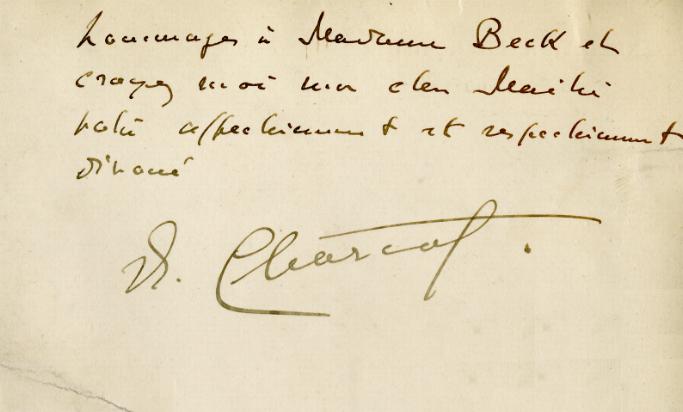 hommages à Madame Beck et
croyez moi mon cher Maître
votre affectionnement et respectueusement
dévoué
Charcot.